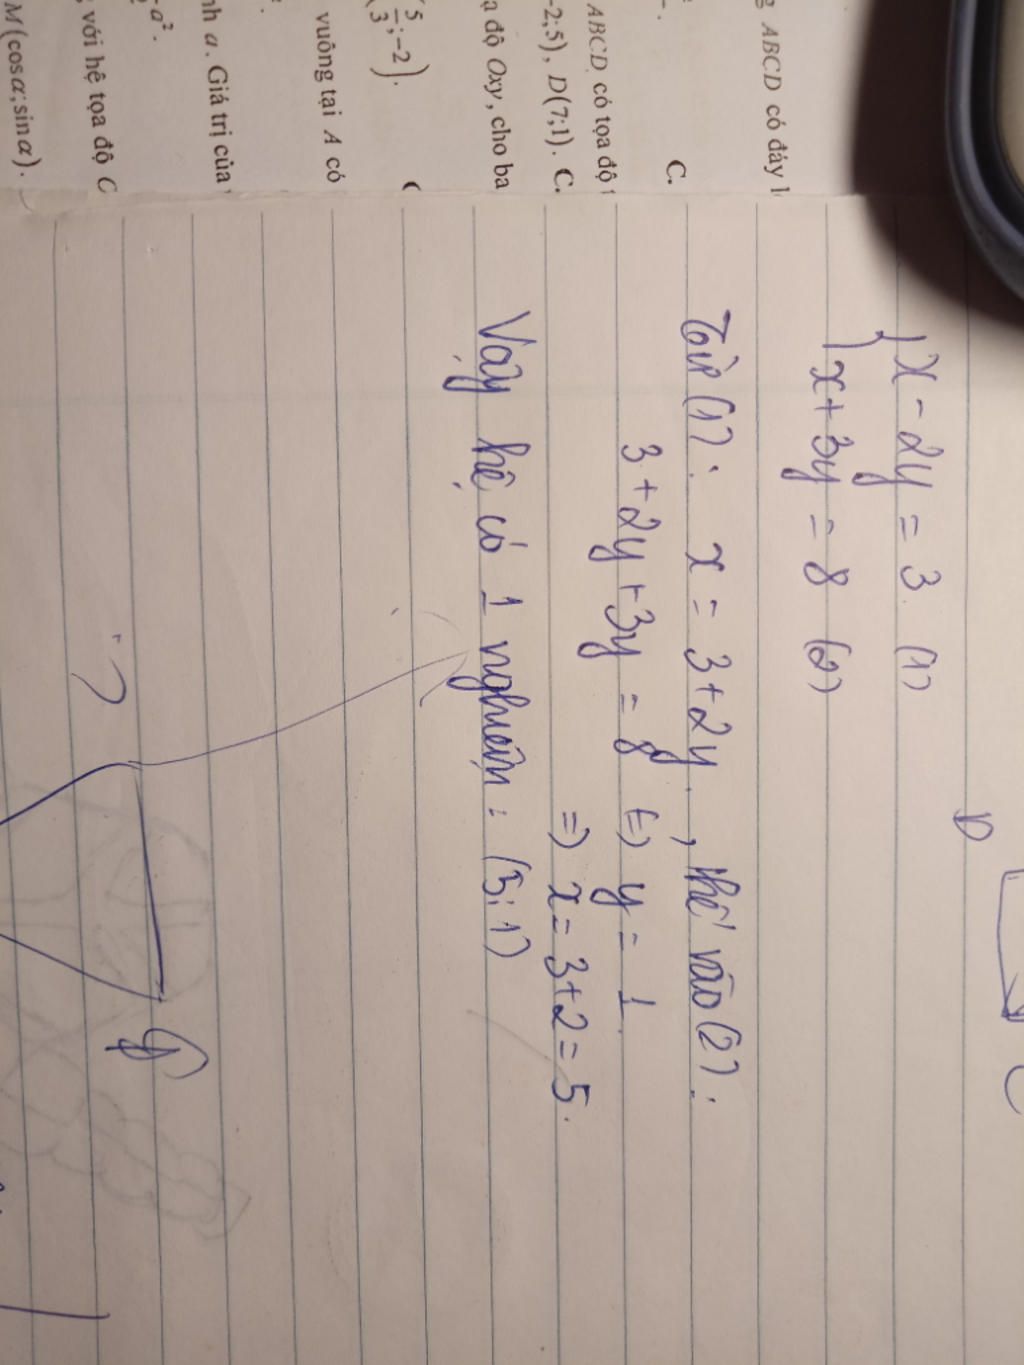 g ABCD có đáy l
C.
ABCD có tọa độ
-2;5), D(7;1). C.
ạ độ Oxy, cho ba
(5/3;-2).
vuông tại A có
nh a. Giá trị của
a².
; với hệ tọa độ O
M(cosα;sinα).
D
{ x - 2y = 3 (1)
x + 3y = 8 (2)
Từ (1): x = 3 + 2y, thế vào (2):
3 + 2y + 3y = 8 (=) y = 1.
=) x = 3 + 2 = 5.
Vậy hệ có 1 nghiệm: (5; 1)